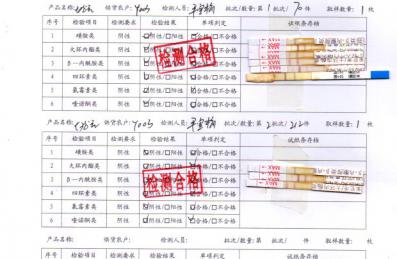 产品名称: 供货农户: Y003 检测人员: 批次/数量: 第 1 批次/ 70 件 取样数量: 1 枚
序号 检验项目 检测要求 检验结果 单项判定 试纸条存档
1 磺胺类 阴性 ☑阴性/□阳性 ☑合格/□不合格
2 大环内酯类 阴性 ☑阴性/□阳性 ☑合格/□不合格
3 β-内酰胺类 阴性 ☑阴性/□阳性 ☑合格/□不合格
4 四环素类 阴性 ☑阴性/□阳性 ☑合格/□不合格
5 氟霉素类 阴性 ☑阴性/□阳性 ☑合格/□不合格
6 喹诺酮类 阴性 ☑阴性/□阳性 ☑合格/□不合格
检测合格
MAX
产品名称: 供货农户: Y005 检测人员: 批次/数量: 第 2 批次/ 212 件 取样数量: 1 枚
序号 检验项目 检测要求 检验结果 单项判定 试纸条存档
1 磺胺类 阴性 ☑阴性/□阳性 ☑合格/□不合格
2 大环内酯类 阴性 ☑阴性/□阳性 ☑合格/□不合格
3 β-内酰胺类 阴性 ☑阴性/□阳性 ☑合格/□不合格
4 四环素类 阴性 ☑阴性/□阳性 ☑合格/□不合格
5 氟霉素类 阴性 ☑阴性/□阳性 ☑合格/□不合格
6 喹诺酮类 阴性 ☑阴性/□阳性 ☑合格/□不合格
检测合格
MAX
产品名称: 供货农户: 检测人员: 批次/数量: 第 批次/ 件 取样数量: 枚
序号 检验项目 检测要求 检验结果 单项判定 试纸条存档
1 磺胺类 阴性 □阴性/□阳性 □合格/□不合格